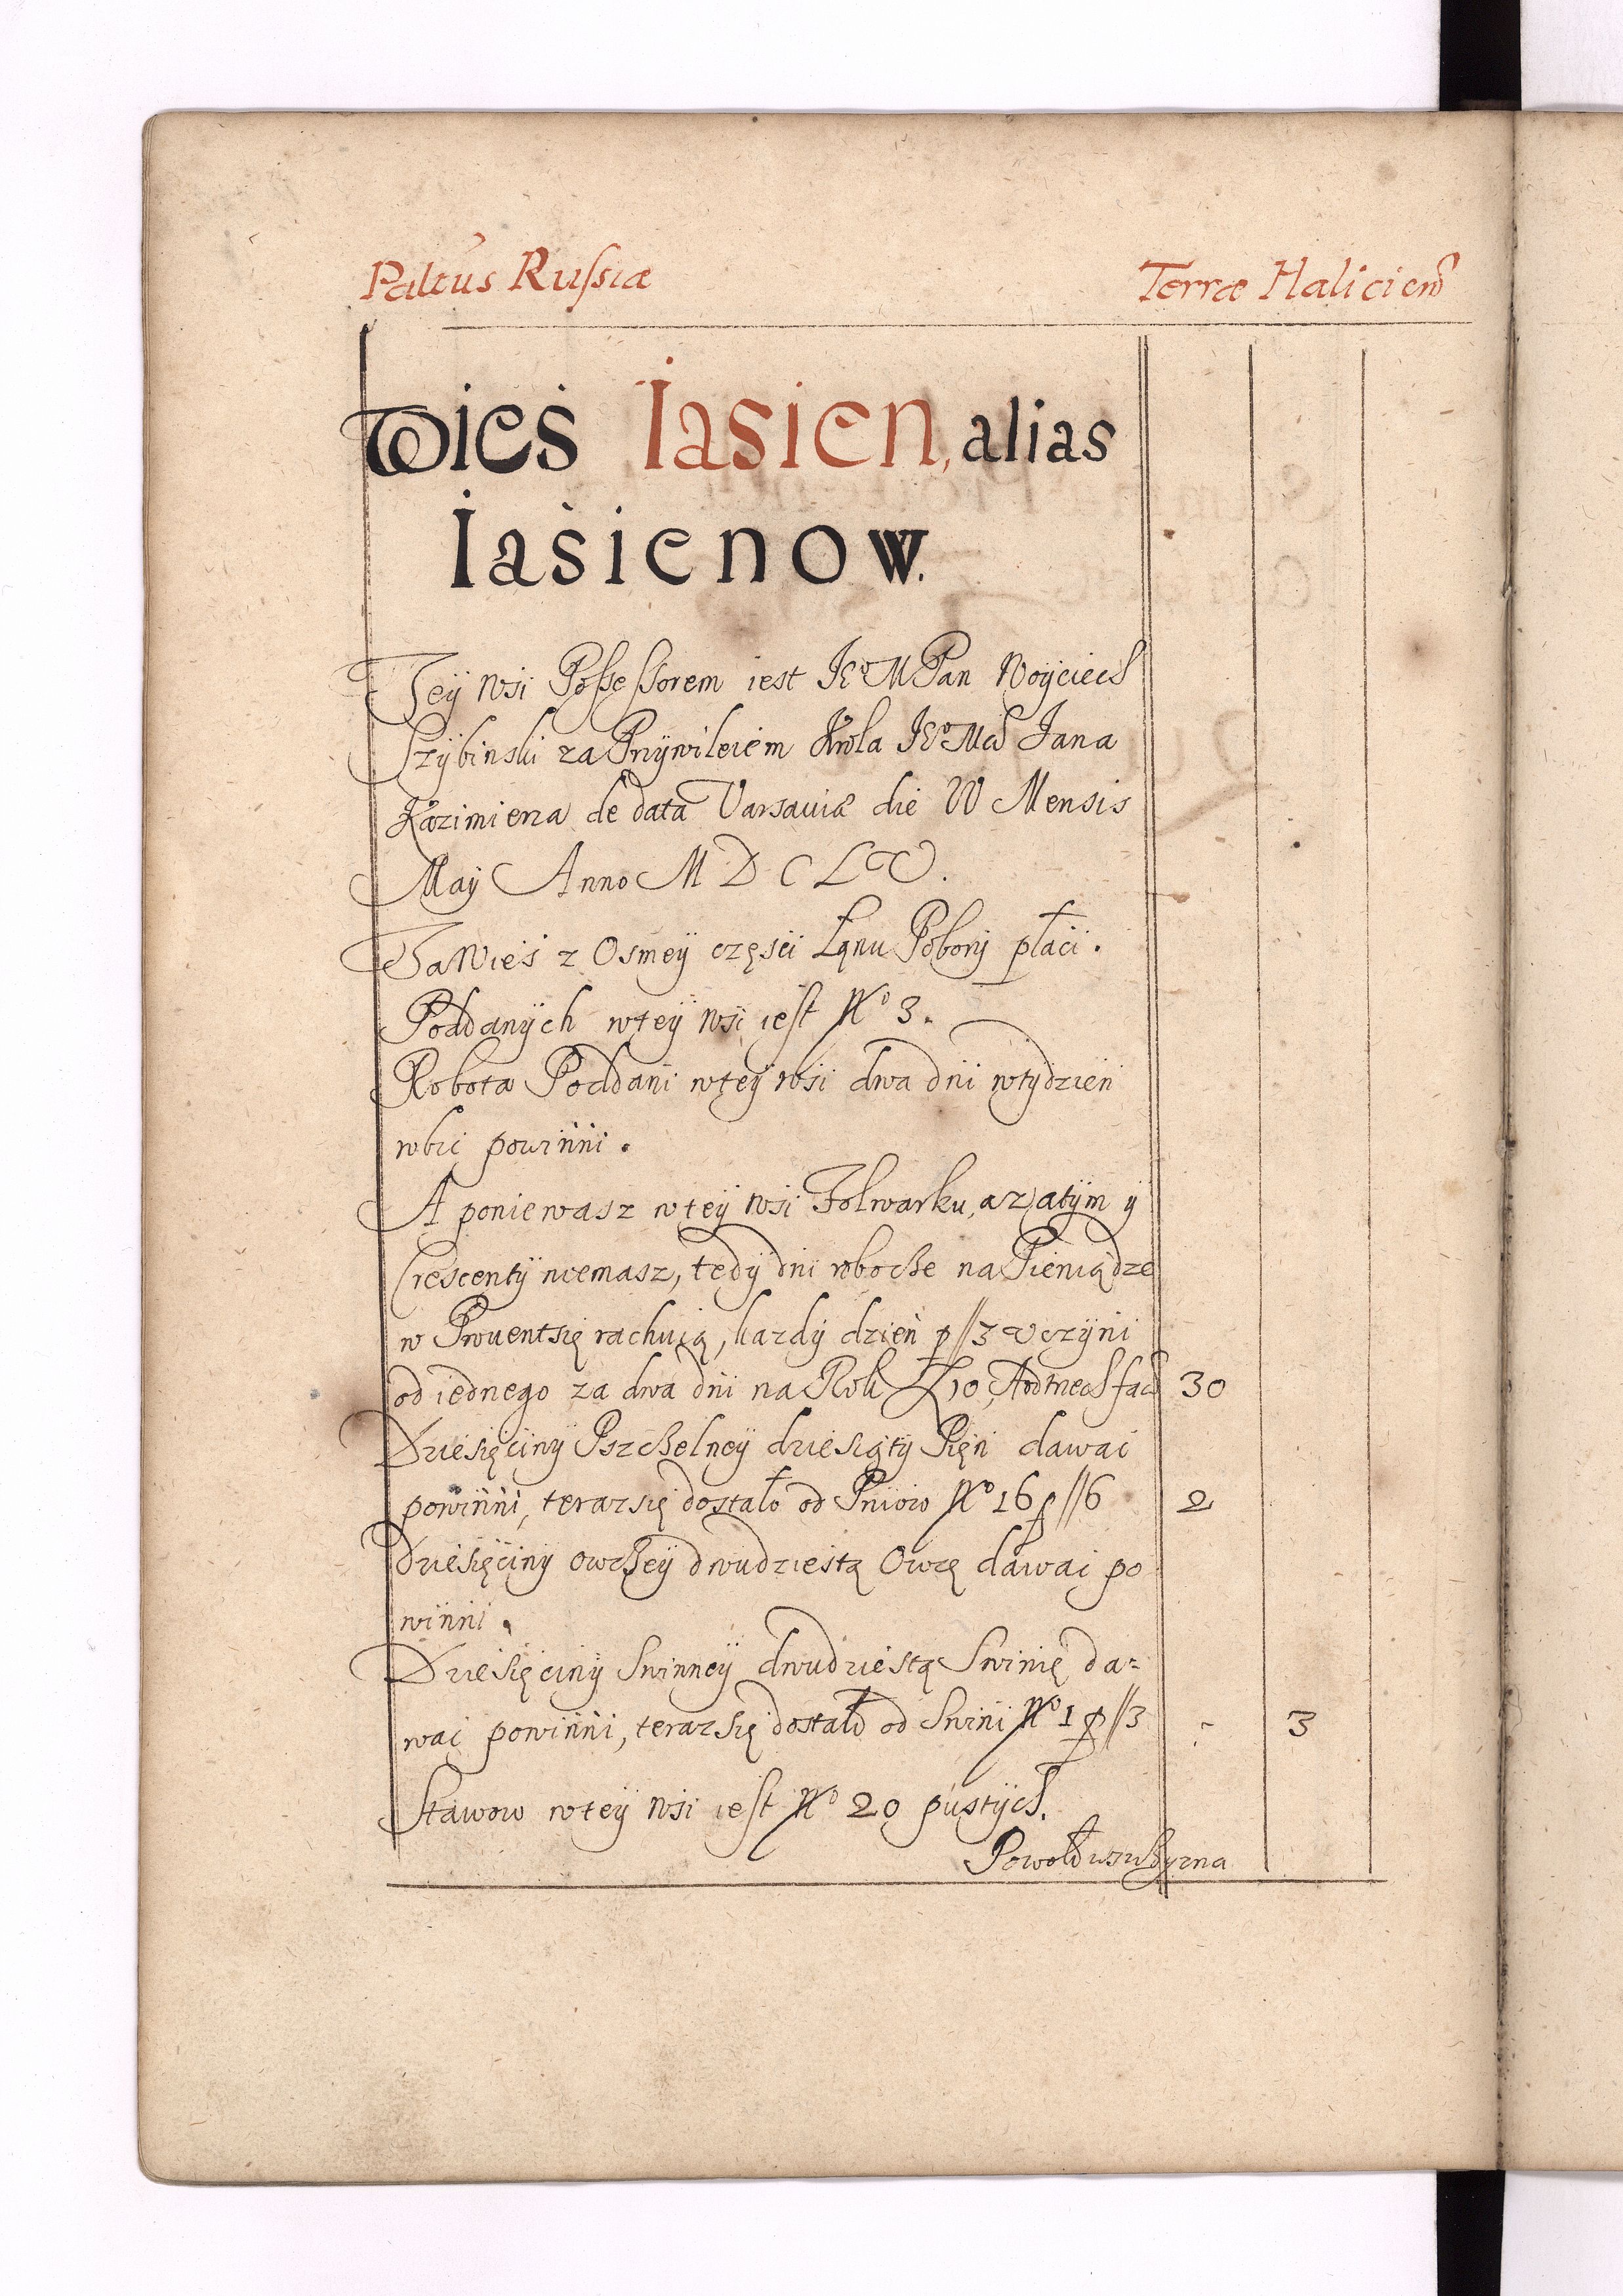 Paltus Russiæ Terræ Haliciens
Wieś Iasien, alias
Iasienow.
Tey Wsi Possessorem iest JE° M Pan Woyciech
Szybinski za Przywileiem Krola JE° Mci Jana
Kazimierza de data Varsaviæ die VV Mensis
May Anno M D C L V.
Ta Wies z Osmey częsci Łanu Pobory płaci.
Poddanych w tey wsi iest N° 3.
Robota Poddani w tey wsi dwa dni w tydzien
robic powinni.
A poniewasz w tey wsi Folwarku, a zatym y
Crescenty niemasz, tedy dni robocze na Pieniądze
w Prouent się rachuią, kazdy dzien p // 3 vczyni
od iednego za dwa dni na Rok Zł 10, Aodtrzech facit 30
Dziesięciny Pszczelney dziesiąty Pień dawac
powinni, teraz się dostało od Pniow N° 16 p // 6 2
Dziesięciny owczey dwudziestą Owcę dawac po
winni.
Dziesięciny Swinney dwudziestą Swinię da=
wac powinni, teraz się dostało od Swini N° 1 p // 3 - 3
Stawow w tey wsi iest N° 20 pustych.